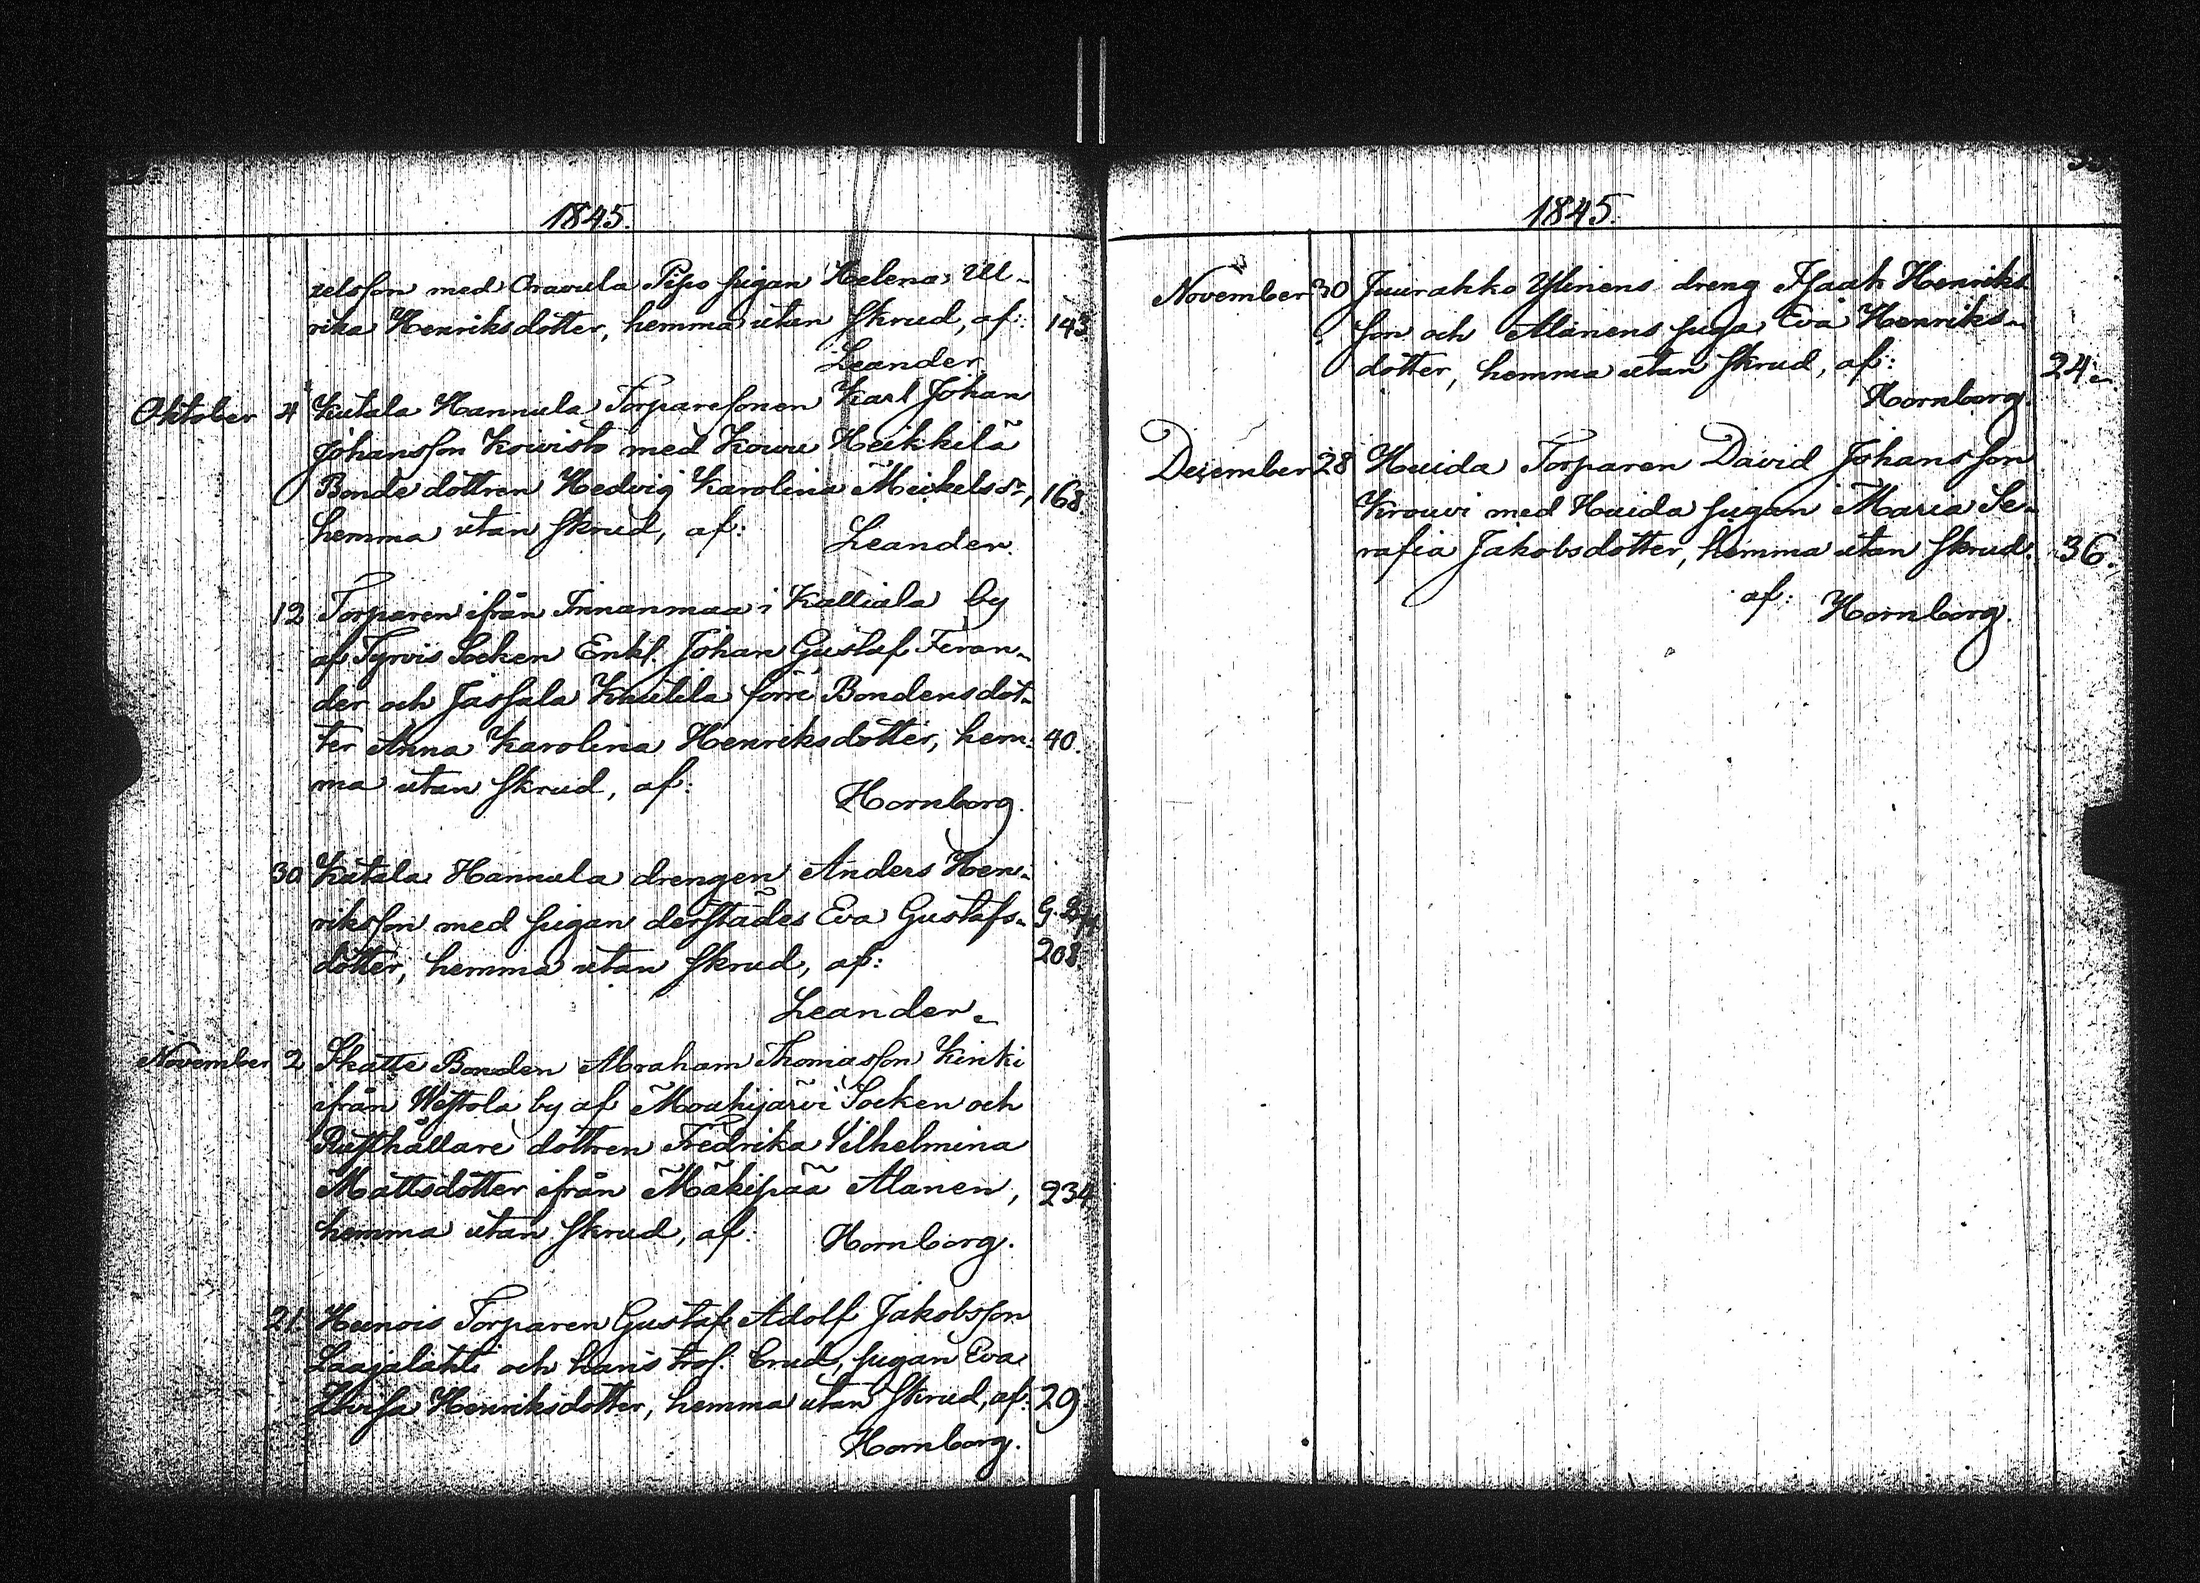 1845.
uelsson med Oravula Pipo pigan Helena Ul-
rika Henriksdotter, hemma utan skrud, af: 143.
Leander.
Oktober 4 Kutala Hannula Torparesonen Karl Johan
Johansson Koivisto med Kouvu Heikkilä
Bonde dottren Hedvig Karolina Mickelsdr, 168.
hemma utan skrud, af: Leander.
12 Torparen ifrån Innanmaa i Kalliala by
af Tyrvis Socken Enkl. Johan Gustaf Feran-
der och Jassala förre Bondens dot-
ter Anna Karolina Henriksdotter, hem- 40.
ma utan skrud, af: Hornborg.
30 Kutala Hannula drengen Anders Hen-
riksson med pigan derstädes Eva Gustafs-
dotter, hemma utan skrud, af: 208.
Leander.
November 2 Skatte Bonden Abraham Thomasson Kinki
ifrån Westola by af Mouhijärvi Socken och
Rusthållare dottren Fredrika Vilhelmina
Mattsdotter ifrån Mäkipää Alanen, 234
hemma utan skrud, af: Hornborg.
21. Heinois Torparen Gustaf Adolf Jakobsson
Laajalahti och hans trol. brud, pigan Eva
Lovisa Henriksdotter, hemma utan skrud, af: 29
Hornborg.
1845.
November 30 Juurakko Ylinens dreng Isaak Henriks
son och Alanens piga Eva Henriks-
dotter, hemma utan skrud, af: 24.
Hornborg.
December 28 Huida Torparen David Johansson
Krouvi med Huida pigan Maria Se-
rafia Jakobsdotter, hemma utan skrud. 36.
af: Hornborg.